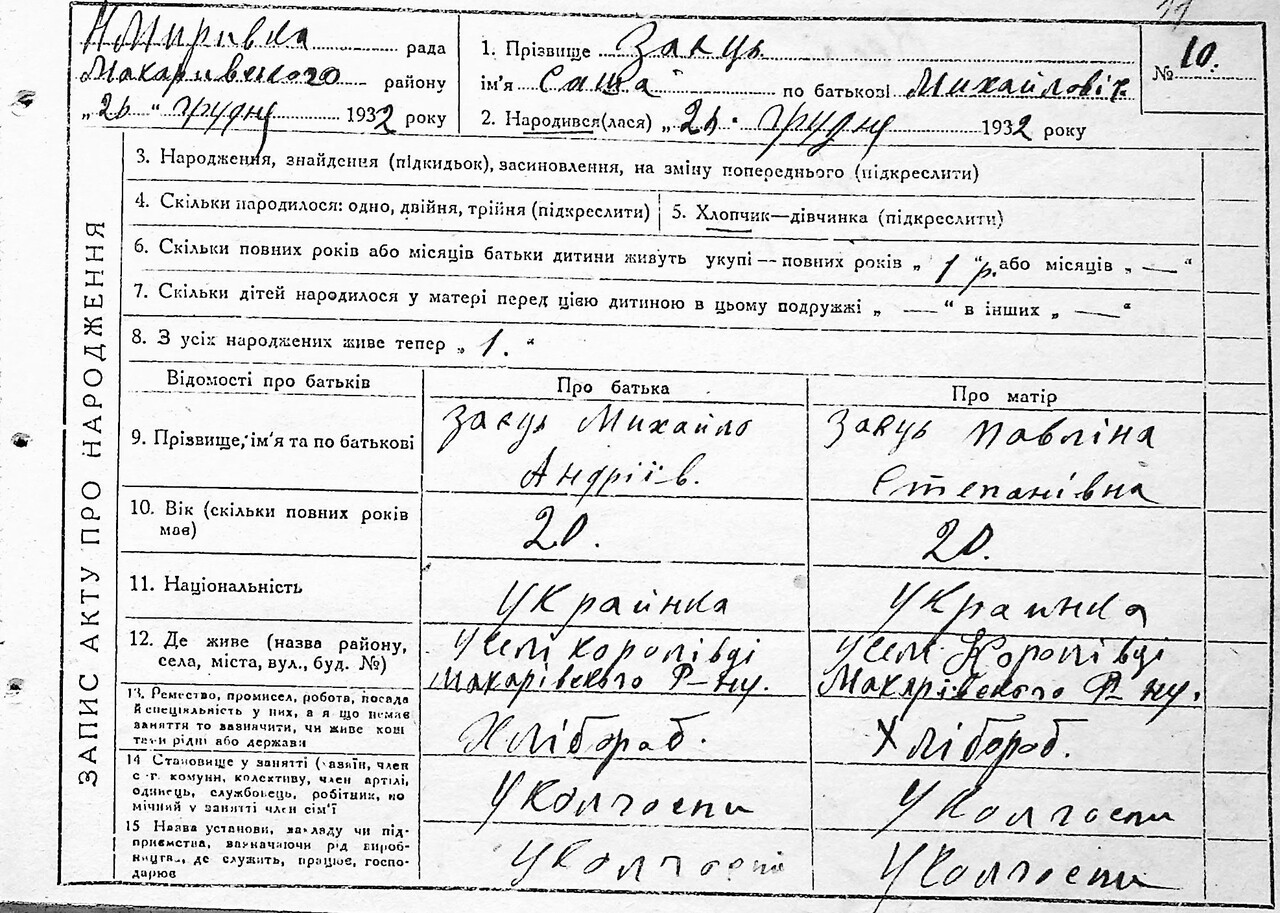 11
Н Мирівка рада
Макарівського району
„ 2д “ грудня 1932 року
1. Прізвище Заєць
ім'я Саша по батькові Михайловіч
2. Народився(лася) „ 2д. грудня 1932 року
№ 10.
ЗАПИС АКТУ ПРО НАРОДЖЕННЯ
3. Народження, знайдення (підкидьок), засиновлення, на зміну попереднього (підкреслити)
4. Скільки народилося: одно, двійня, трійня (підкреслити)
5. Хлопчик—дівчинка (підкреслити)
6. Скільки повних років або місяців батьки дитини живуть укупі — повних років „ 1 “ р. або місяців „ — “
7. Скільки дітей народилося у матері перед цією дитиною в цьому подружжі „ — “ в інших „ — “
8. З усіх народжених живе тепер „ 1. “
Відомості про батьків
Про батька
Про матір
9. Прізвище, ім'я та по батькові
Заєць Михайло
Андріїв.
Заєць Павліна
Степанівна
10. Вік (скільки повних років
має)
20.
20.
11. Національність
Украйнка
Украинка
12. Де живе (назва району,
села, міста, вул., буд. №)
У селі Королівці
Макарівского Р-ну.
У селі Королівці
Макарівского Р-ну.
13. Ремество, промисел, робота, посада
й спеціяльність у них, а я що немає
заняття то зазначити, чи живе кош
тами рідні або держави
Хлібороб.
Хлібороб.
14 Становище у занятті (хазяїн, член
с.-г. комуни, колективу, член артілі,
одинець, службовець, робітник, по
мічний у занятті член сім'ї
У колгоспи
У колгоспи
15 Назва установи, закладу чи під-
приємства, зазначаючи рід вироб-
ництва, де служить, працює, госпо-
дарює
У колгоспі
У колгоспи